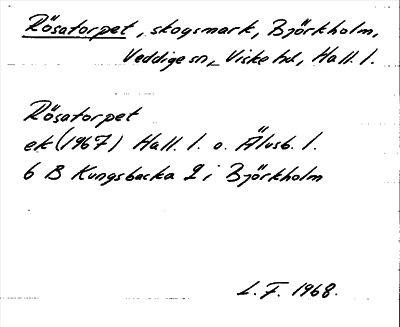 Rösatorpet, skogsmark, Björkholm,
Veddige sn, Viske hd, Hall. l.
Rösatorpet
ek (1967) Hall. l. o. Älvsb. l.
6 B Kungsbacka 2 i Björkholm
L.F. 1968.